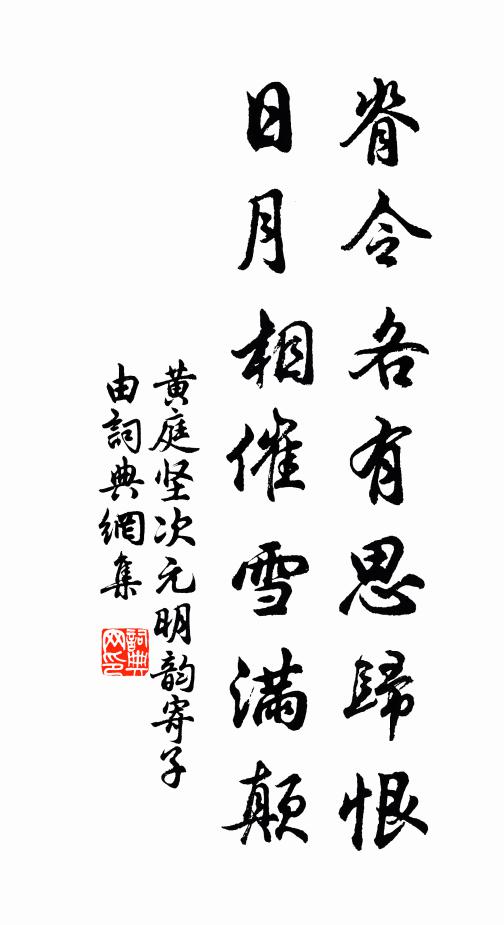 脊令各有思歸恨
日月相催雪满顛
黄庭坚次元明韵寄子
由詞典網集
詞典
网印